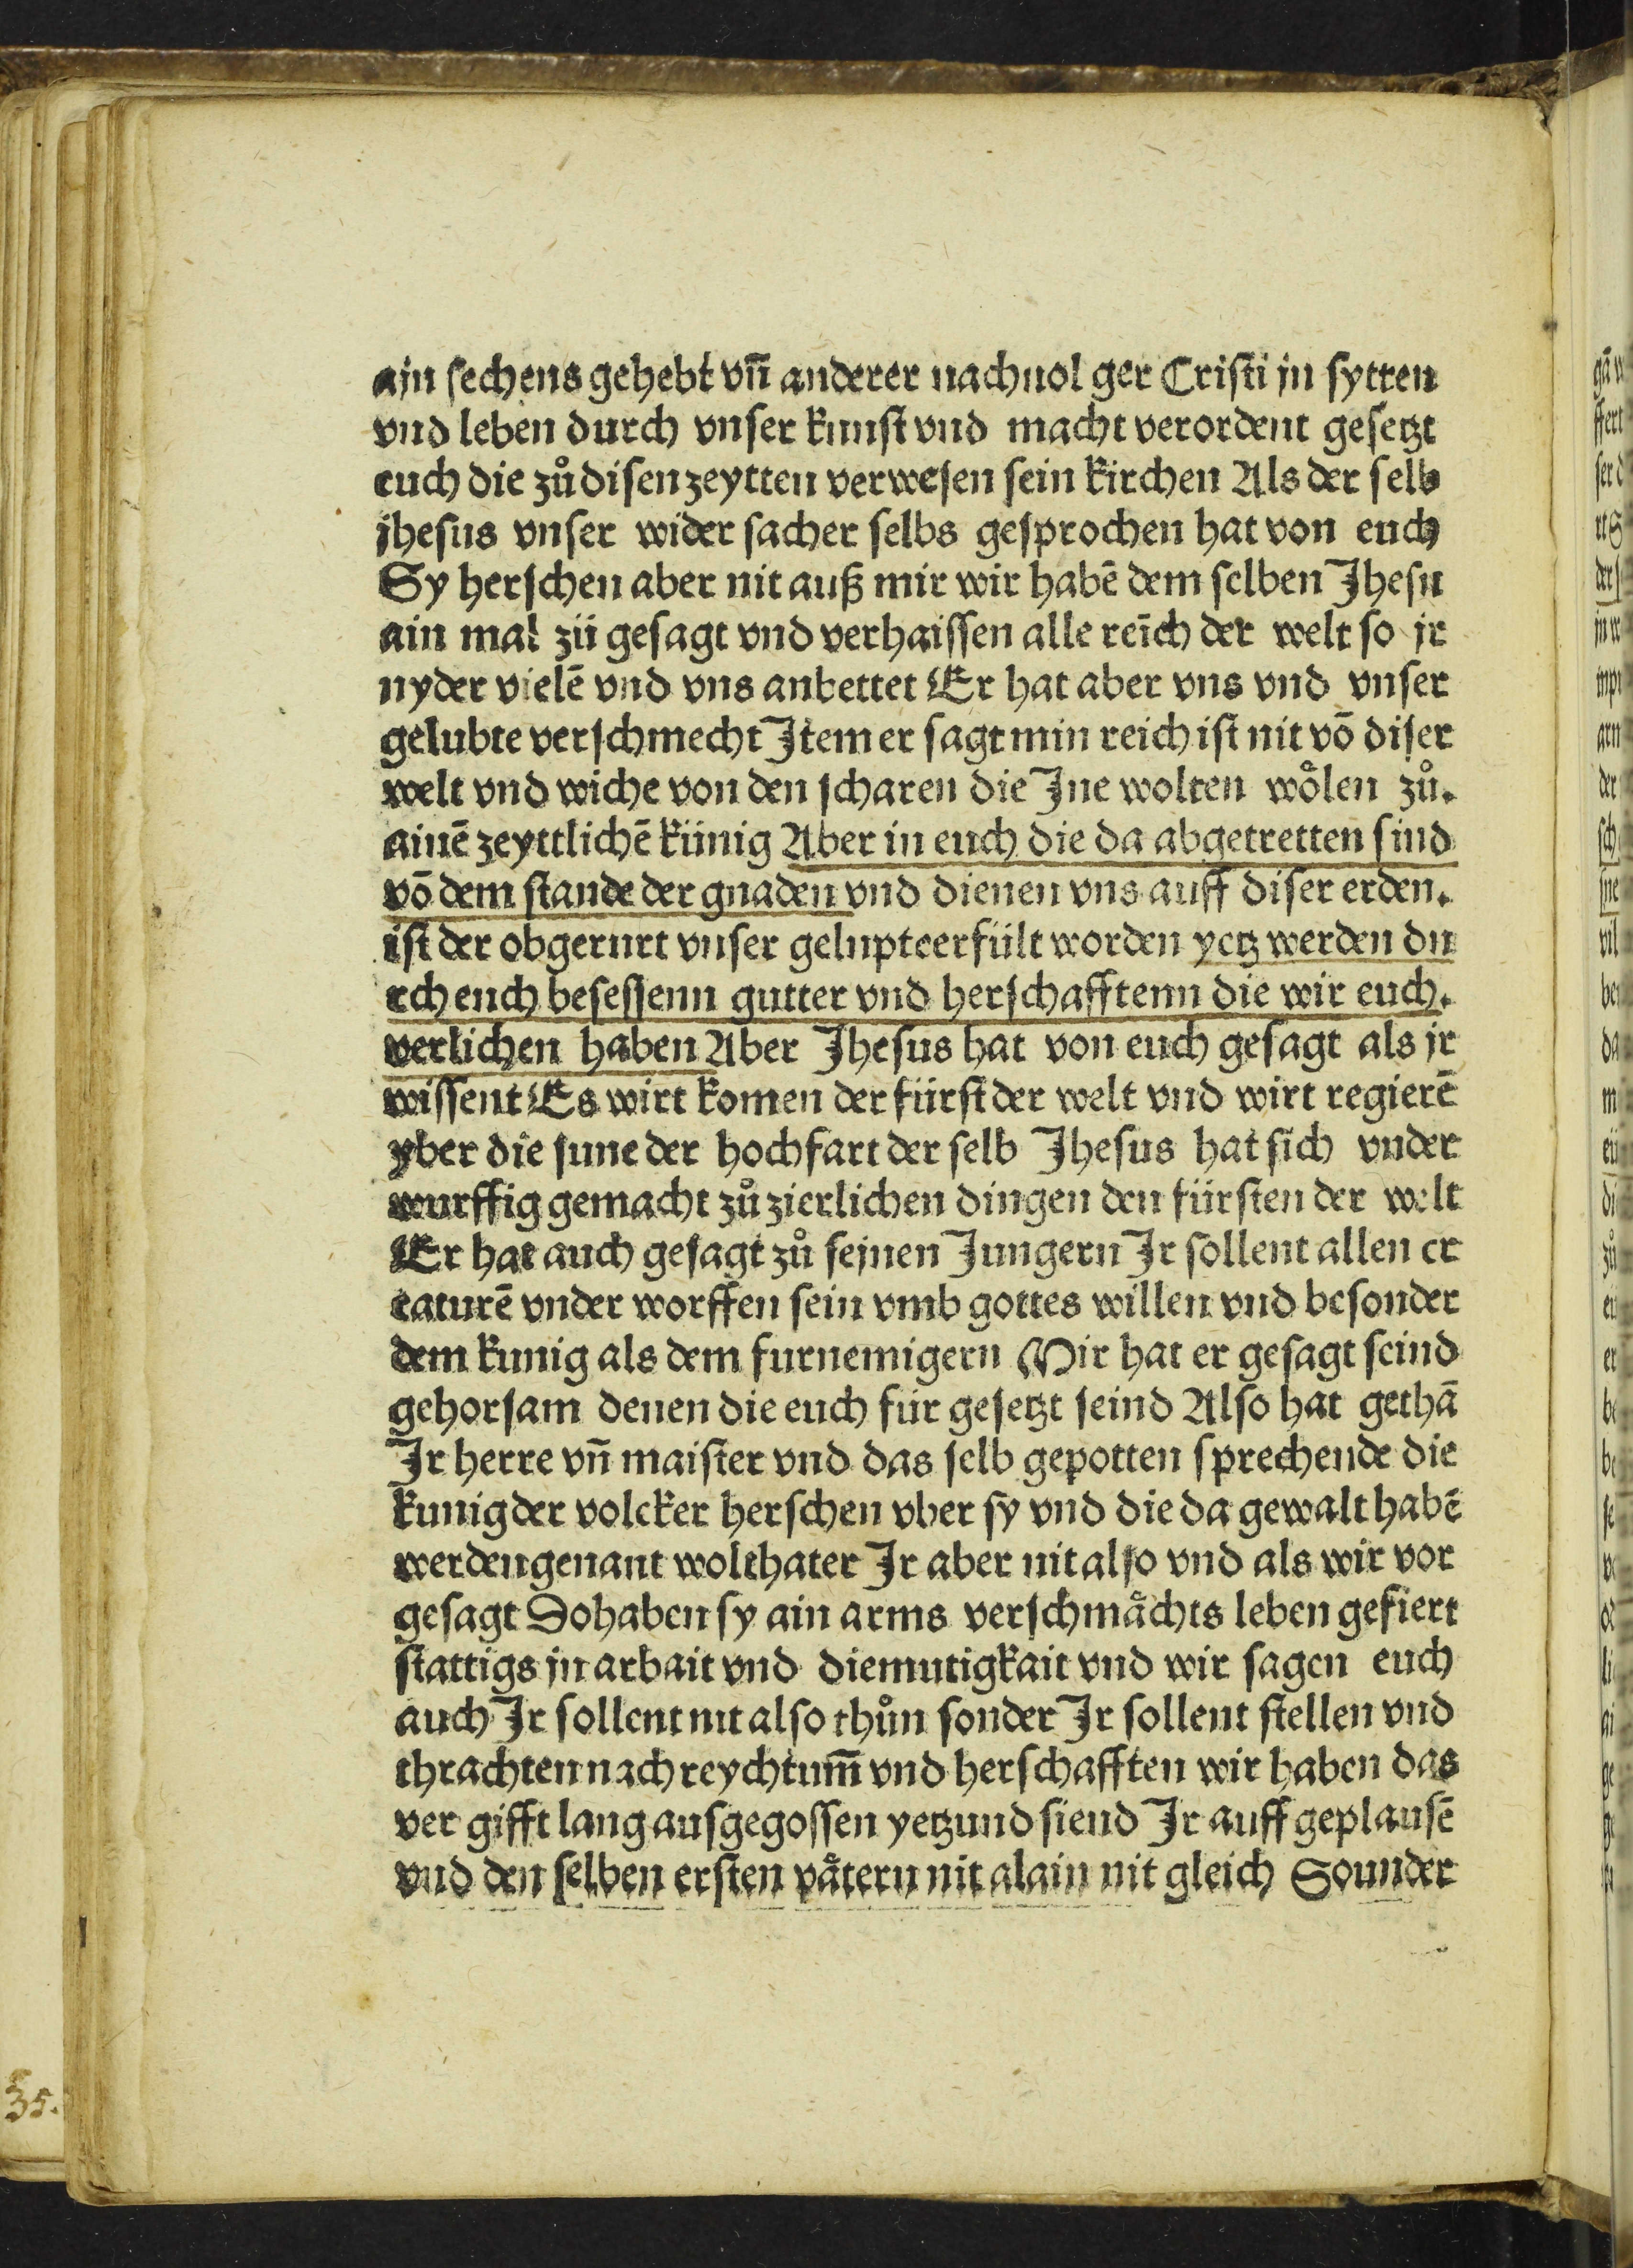 ain sechens gehebt vn̄ anderer nachuol ger Cristi jn sytten
vnd leben durch vnser kunst vnd macht verordent gesetzt
euch die zů disen zeytten verwesen sein kirchen Als der selb
jhesus vnser wider sacher selbs gesprochen hat von euch
Sy herschen aber nit auß mir wir habē dem selben Jhesu
ain mal zü gesagt vnd verhaissen alle reīch der welt so jr
nyder vielē vnd vns anbettet Er hat aber vns vnd vnser
gelubte verschmecht Jtem er sagt min reich ist nit vō diser
welt vnd wiche von den scharen die Jne wolten wôlen zů.
ainē zeyttlichē künig Aber in euch die da abgetretten sind
vō dem stande der gnaden vnd dienen vns auff diser erden.
ist der obgerurt vnser gelupteerfült worden yetz werden du
rch euch besessenn gutter vnd herschafftenn die wir euch.
verlichen haben Aber Jhesus hat von euch gesagt als jr
wissent Es wirt komen der fürst der welt vnd wirt regierē
yber die sune der hochfart der selb Jhesus hat sich vnder
wurffig gemacht zů zierlichen dingen den fürsten der welt
Er hat auch gesagt zů seinen Jungern Jr sollent allen cr
eaturē vnder worffen sein vmb gottes willen vnd besonder
dem kunig als dem furnemigern Mir hat er gesagt seind
gehorsam denen die euch für gesetzt seind Also hat gethā
Jr herre vn̄ maister vnd das selb gepotten sprechende die
kunig der volcker herschen vber sy vnd die da gewalt habē
werden genant wolthater Jr aber nit also vnd als wir vor
gesagt So haben sy ain arms verschmåchts leben gefiert
stattigs jn arbait vnd diemutigkait vnd wir sagen euch
auch Jr sollent nit also thůn sonder Jr sollent stellen vnd
thrachten nach reychtum̄ vnd herschafften wir haben das
ver gifft lang ausgegossen yetzund siend Jr auff geplausē
vnd den selben ersten våtern nit alain nit gleich Sounder
35.